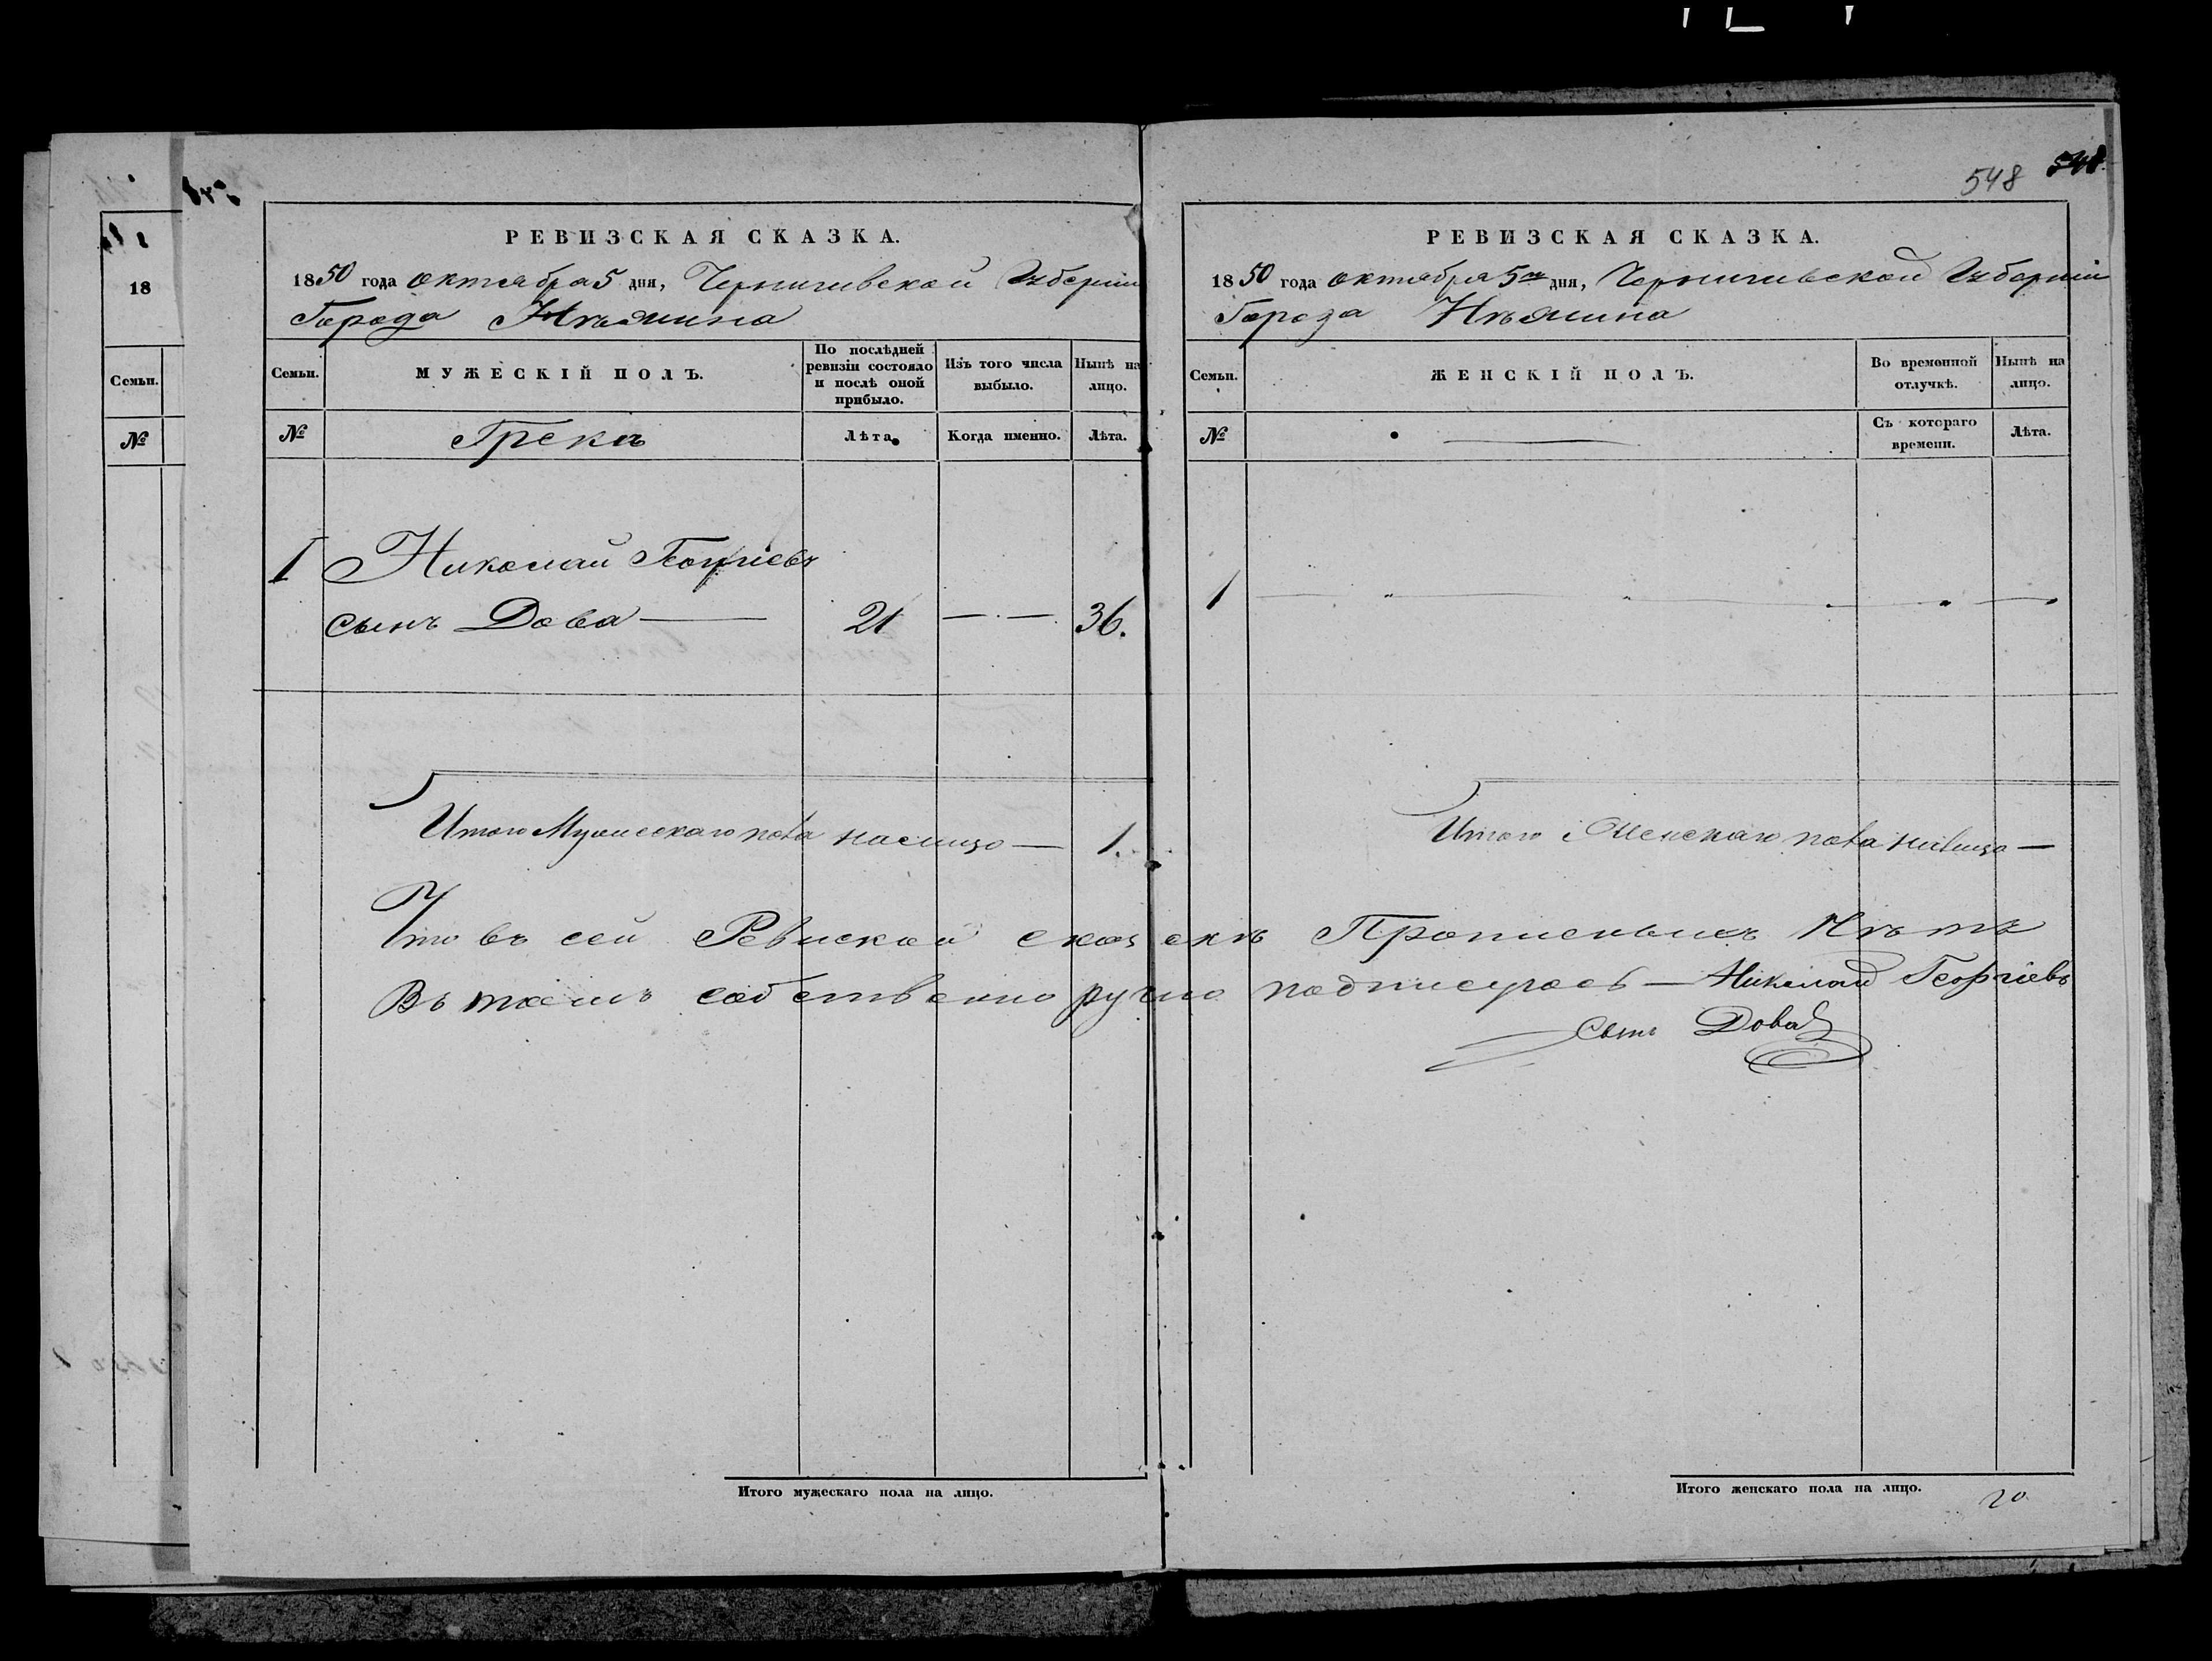 548 548
РЕВИЗСКАЯ СКАЗКА.
1850 года октября 5 дня, Черниговской Губернии
Города Нѣжина
Семьи.
МУЖЕСКІЙ ПОЛЪ.
По послѣдней ревизіи состояло и послѣ оной прибыло.
Изъ того числа выбыло.
Нынѣ на лицо.
№
Грекъ
Лѣта.
Когда именно.
Лѣта.
1 Николай Георгіевъ
сынъ Дова — 21 — · — 36.
Итого Мужескаго пола налицо — 1.
Что въ сей Ревиской сказкѣ Прописныхъ Нѣтъ
Въ томъ собственно ручно подписуюсь — Николай Георгіевъ
сынъ Дова
Итого мужескаго пола на лицо.
РЕВИЗСКАЯ СКАЗКА.
1850 года октября 5го дня, Черниговской Губерніи
Города Нѣжина
Семьи.
ЖЕНСКІЙ ПОЛЪ.
Во временной отлучкѣ.
Нынѣ на лицо.
№
Съ котораго времени.
Лѣта.
1
Итого Женскаго пола налицо —
Итого женскаго пола на лицо.
20
18
Семьи.
№